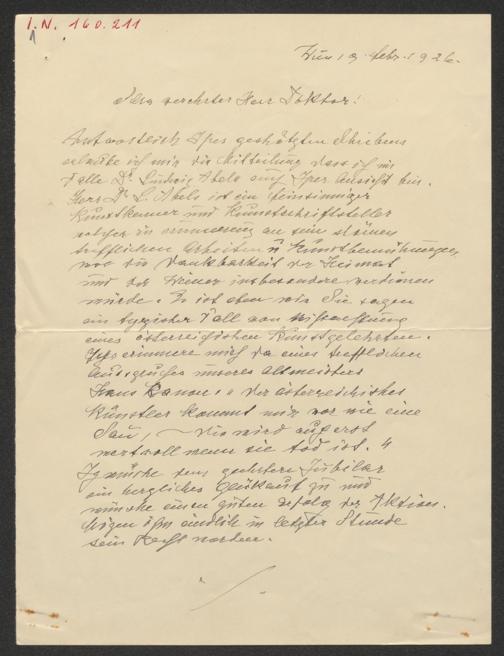 I.N. 160.211
1
Wien, 19. Febr. 1926.
Sehr verehrter Herr Doktor!
Antwortlich Ihres geschätzten Schreibens
erlaube ich mir die Mitteilung dass ich im
Falle Dr. Ludwig Abels auch Ihrer Ansicht bin.
Herr Dr. L. Abels ist ein feinsinniger
Kunstkenner und Kunstschriftsteller
welcher in
trefflichen Arbeiten u Kunstbemühungen,
wo die Dankbarkeit der Heimat
und der Wiener insbesondere verdienen
würde. Es ist eben wie Sie sagen
ein typischer Fall von
eines österreichischen Kunstgelehrten.
Ich erinnere mich da eines trefflichen
Ausspruches unseres Altmeisters
Hans Canon: „ Der österreichische
Künstler kommt mir vor wie eine
Sau, – die wird auch erst
wertvoll wenn sie tod ist. "
Ich dem geehrten Jubilar
ein herzliches Glückauf zu und
wünsche einen guten Erfolg der Aktion.
Mögen ihm endlich in letzter Stunde
sein Recht werden.